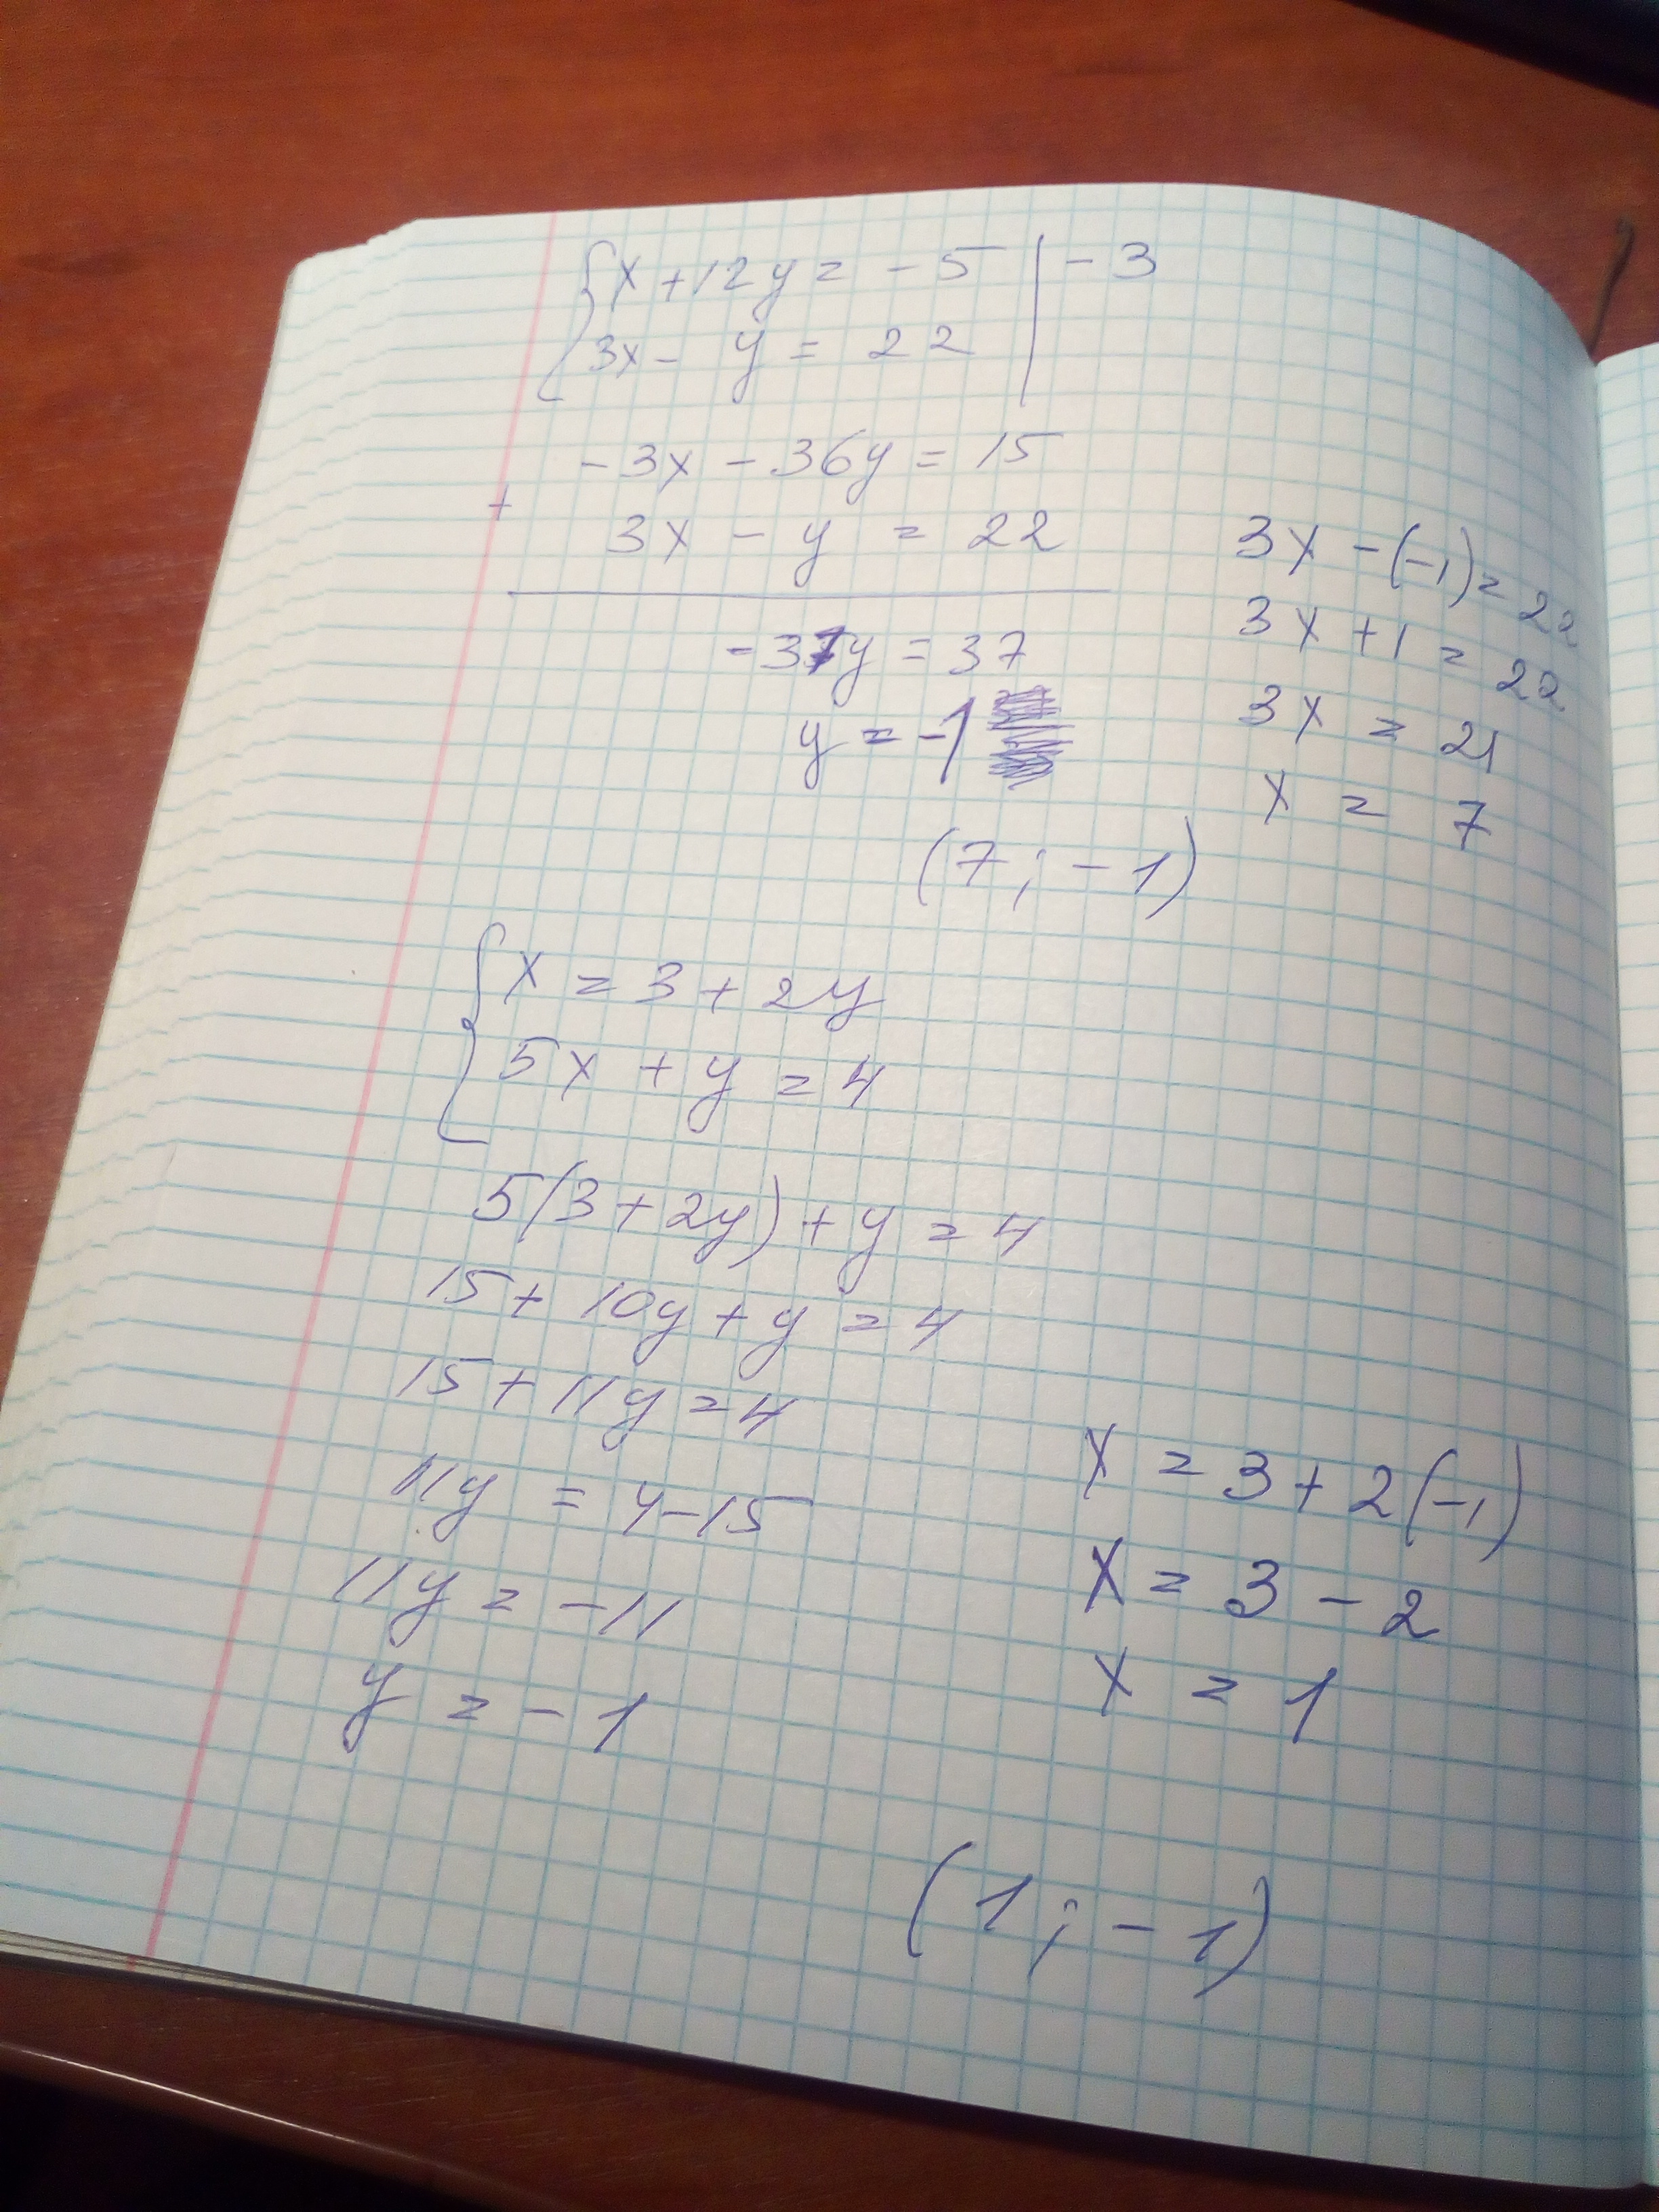 {x+12y=-5 | -3
3x- y = 22
-3x - 36y = 15
+
3x - y = 22
-37y = 37
y = -1
3x -(-1)=22
3x +1 = 22
3x = 21
x = 7
(7; -1)
{x = 3 + 2y
5x + y = 4
5(3+2y)+y = 4
15 + 10y + y = 4
15 + 11y = 4
11y = 4-15
11y = -11
y = -1
x = 3 + 2(-1)
x = 3 - 2
x = 1
(1; -1)